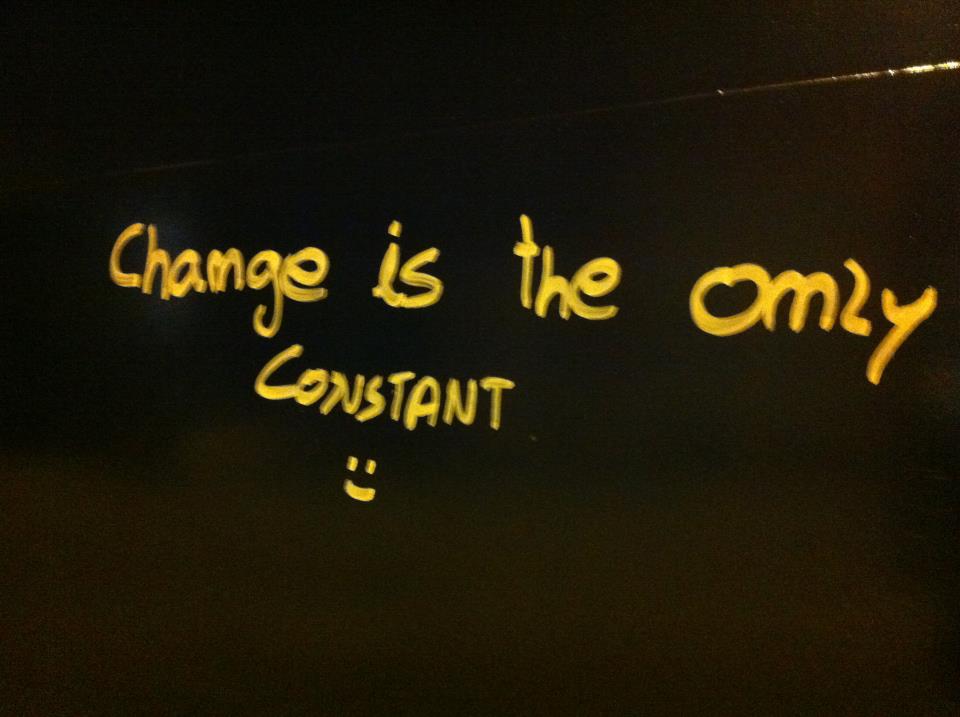 Change is the only
CONSTANT